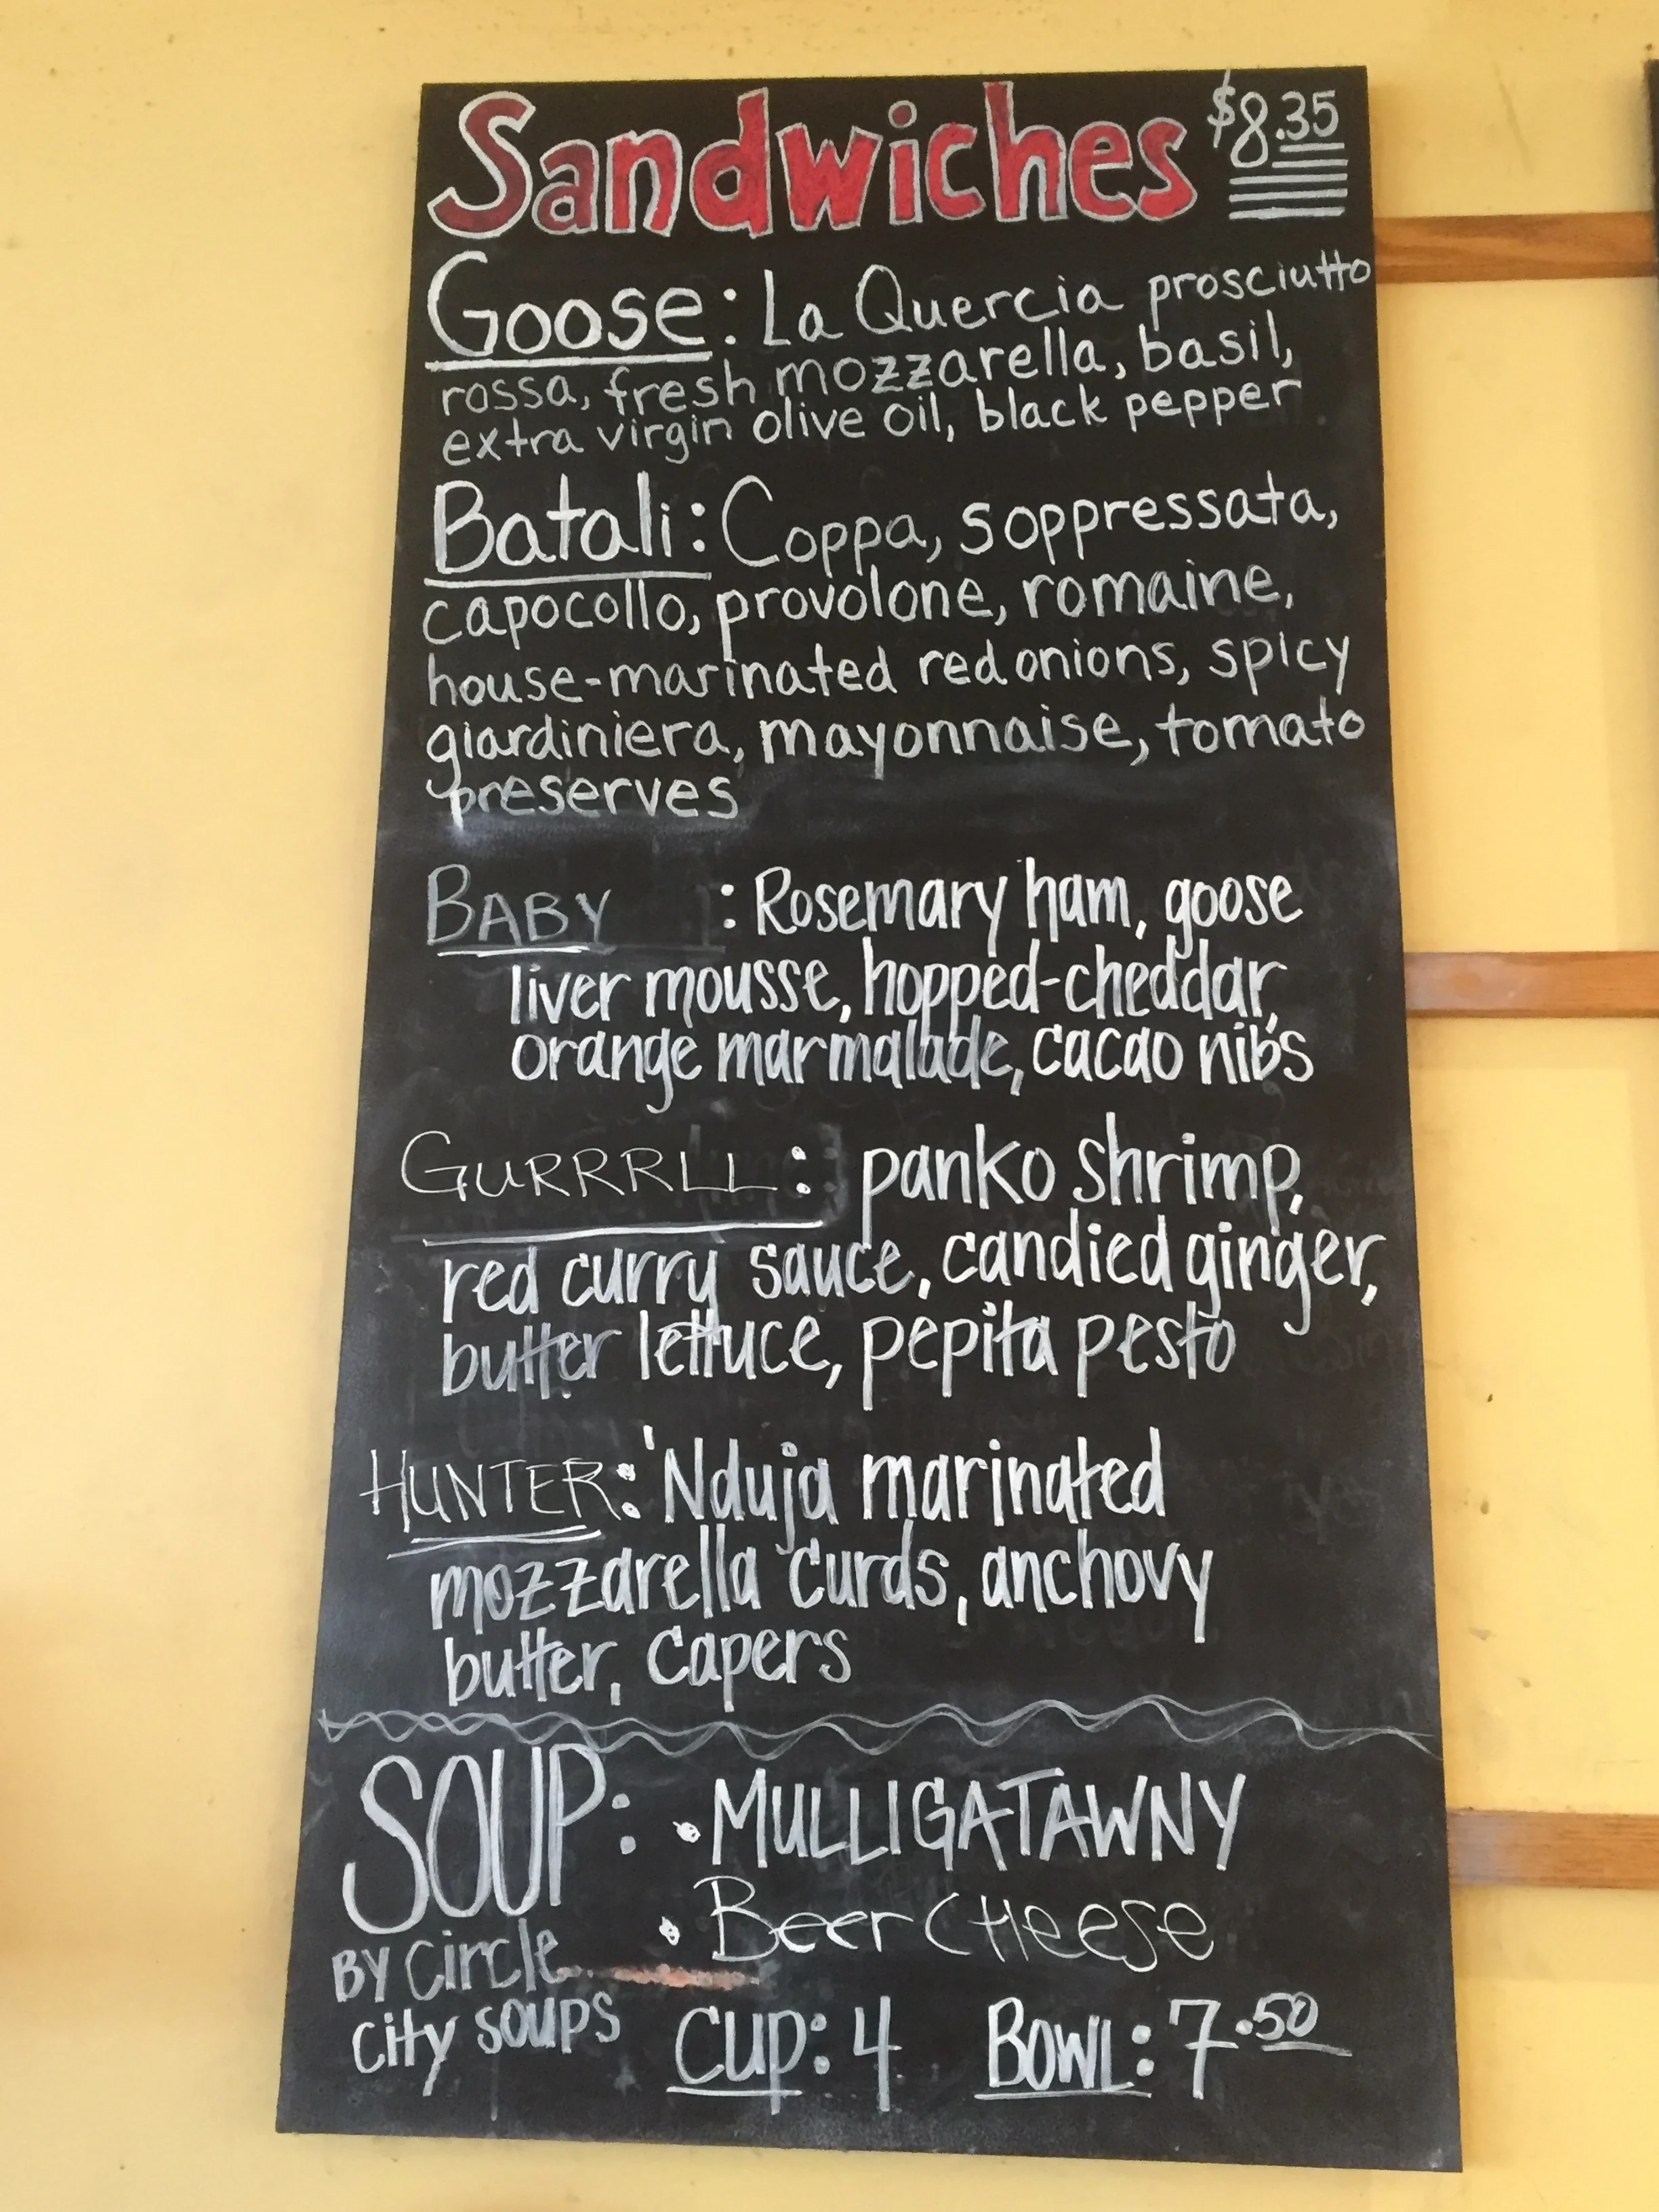 Sandwiches $8.35
Goose: La Quercia prosciutto
rossa, fresh mozzarella, basil,
extra virgin olive oil, black pepper
Batali: Coppa, soppressata,
capocollo, provolone, romaine,
house-marinated red onions, spicy
giardiniera, mayonnaise, tomato
preserves
BABY : Rosemary ham, goose
liver mousse, hopped-cheddar,
orange marmalade, cacao nibs
GURRRLL: panko shrimp,
red curry sauce, candied ginger,
butter lettuce, pepita pesto
HUNTER: 'Nduja marinated
mozzarella curds, anchovy
butter, capers
SOUP: • MULLIGATAWNY
• Beer CHeese
BY Circle
City SOUPS
CUP: 4 BOWL: 7.50